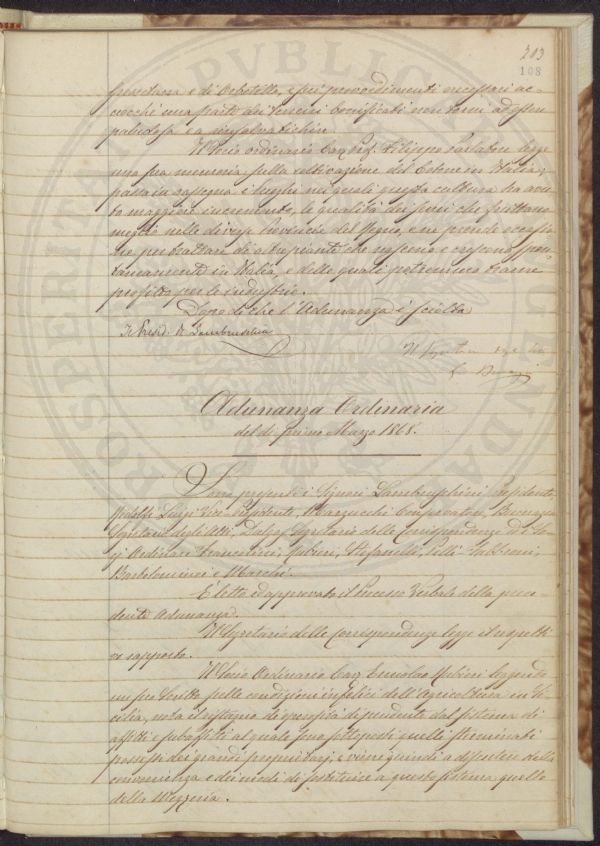 203
108
e di Orbetello, e sui provvedimenti necessari ac-
ciocchè una parte dei terreni bonificati non torni ad esser
paludosa e a
Il Socio Ordinario Cav. Prof. Filippo Parlatore legge
una sua memoria sulla coltivazione del Cotone in Italia,
passa in rassegna i luoghi nei quali questa cultura ha avu-
to maggiore incremento, le qualità dei semi che fruttano
meglio nelle diverse Provincie del Regno, e ne prende occasio-
ne per trattare di altre piante che nascono e crescono spon-
taneamente in Italia, e delle quali potremmo trarre
profitto per le industrie.
Dopo di che l'Adunanza è sciolta
Il Presid. R. Lambruschini
Il Segretario
Adunanza Ordinaria
del dì primo Marzo 1868.
Sono presenti i Signori Lambruschini Presidente,
Ridolfi Luigi Vice-Presidente, Conservatore,
Segretario degli Atti, Segretario delle Corrispondenze ed i So-
cj Ordinari Franceschi, Rubieri, Stefanelli, Pelli-Fabbroni,
Bartolommei e Marchi.
È letto ed approvato il Processo Verbale della prece-
dente Adunanza.
Il Segretario delle Corrispondenze legge il rispetti-
vo rapporto.
Il Socio Ordinario Cav. Ermolao Rubieri leggendo
un suo scritto sulle condizioni infelici dell'Agricoltura in Si-
cilia, nota il ristagno di prosperità dipendente dal sistema di
affitti e subaffitti al quale sono sottoposti quelli sterminati
possessi dei grandi proprietarj; e viene quindi a discutere della
convenienza e dei modi di sostituire a questo sistema quello
della Mezzeria.